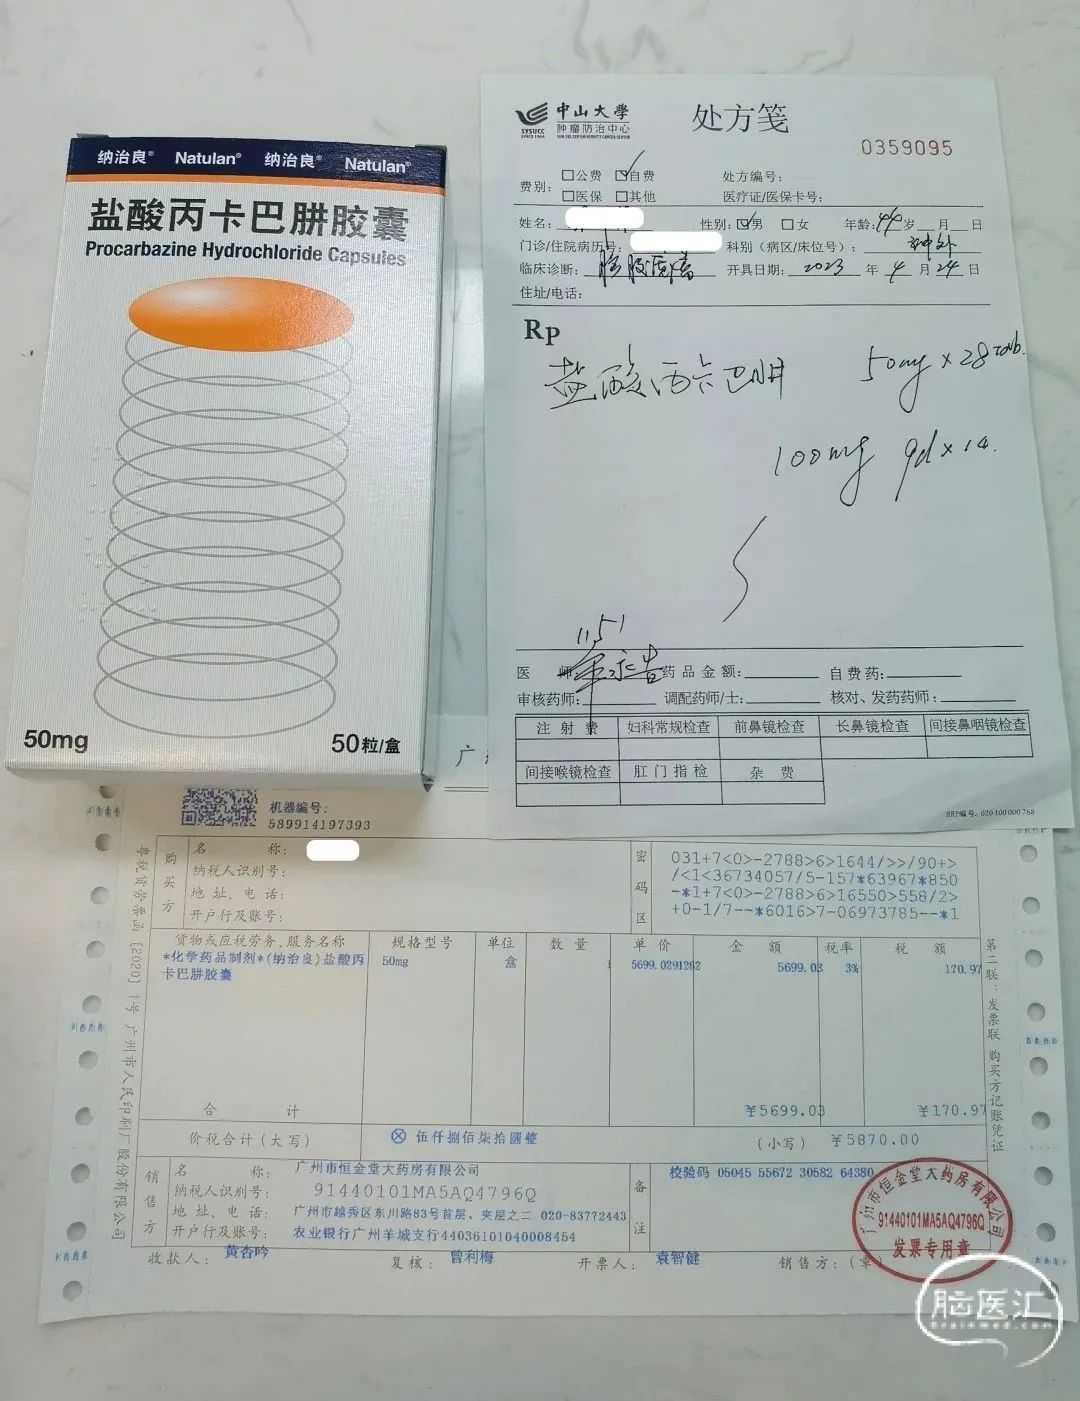 纳治良® Natulan® 纳治良® Natulan®
盐酸丙卡巴肼胶囊
Procarbazine Hydrochloride Capsules
50mg
50粒/盒
中山大学
肿瘤防治中心
SYSUCC
SUN YAT-SEN UNIVERSITY CANCER CENTER
SINCE 1964
处方笺
0359095
费别: 公费 自费
医保 其他
处方编号:
医疗证/医保卡号:
姓名: 性别: 男 女 年龄: 44 岁 月 日
门诊/住院病历号: 科别(病区/床位号): 神外
临床诊断: 脑胶质瘤 开具日期: 2023 年 4 月 24 日
住址/电话:
Rp
盐酸丙卡巴肼 50mg×28
100mg qd×14.
1151
医 师 药品金额: 自费药:
审核药师: 调配药师/士: 核对、发药药师:
注射费 妇科常规检查 前鼻镜检查 长鼻镜检查 间接鼻咽镜检查
间接喉镜检查 肛门指检 杂费
HRP编号。020100000768
广
机器编号:
589914197393
购买方
名 称:
纳税人识别号:
地 址、电 话:
开户行及账号:
密码区
031+7<0>-2788>6>1644/>>/90+>
/<1<36734057/5-157*63967*850
-*1+7<0>-2788>6>16550>558/2>
+0-1/7--*6016>7-06973785--*1
货物或应税劳务、服务名称 规格型号 单位 数量 单价 金额 税率 税额
*化学药品制剂*(纳治良)盐酸丙 50mg 盒 1 5699.0291262 5699.03 3% 170.97
卡巴肼胶囊
合 计 ¥5699.03 ¥170.97
价税合计(大写) ⊗ 伍仟捌佰柒拾圆整 (小写) ¥5870.00
销售方
名 称: 广州市恒金堂大药房有限公司
纳税人识别号: 91440101MA5AQ4796Q
地 址、电 话: 广州市越秀区东川路83号首层、夹层之二 020-83772443
开户行及账号: 农业银行广州羊城支行44036101040008454
备注
校验码 05045 55672 30582 64380
收款人: 黄杏吟 复核: 曾利梅 开票人: 袁智健 销售方:(章)
第二联:发票联 购买方记账凭证
[2020] 1号 广州市人民印刷厂股份有限公司
广州市恒金堂大药房有限公司
91440101MA5AQ4796Q
发票专用章
脑医汇
Brainmed.com